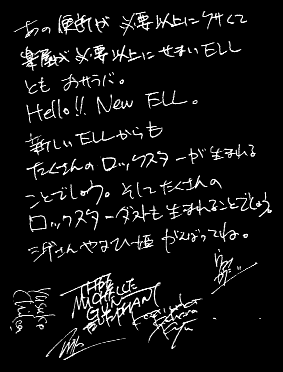 あの便所が必要以上にクサくて
楽屋が必要以上にせまいELL
ともおサラバ。
Hello!! New ELL。
新しいELLからも
たくさんのロックスターが生まれる
ことでしょう。そしてたくさんの
ロックスターダストも生まれることでしょう。
がんばってね。
THEE
MICHELLE
GUN
ELEPHANT